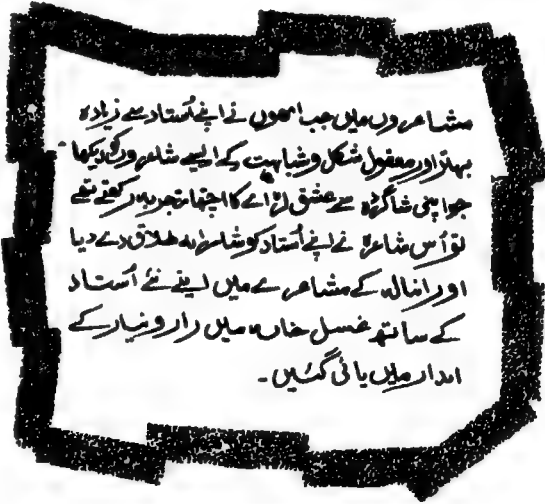 مشاعروں میں جب انھوں نے اپنے اُستاد سے زیادہ
بہتر اور معقول شکل و شباہت کے ایسے شاعروں کو دیکھا
جو اپنی شاگردہ سے عشق لڑانے کا اچھا تجربہ رکھتے تھے
تو اُس شاعرہ نے اپنے اُستاد کو شاعرانہ طلاق دے دیا
اور انبالہ کے مشاعرے میں اپنے نئے اُستاد
کے ساتھ غسل خانہ میں راز و نیاز کے
انداز میں پائی گئیں۔